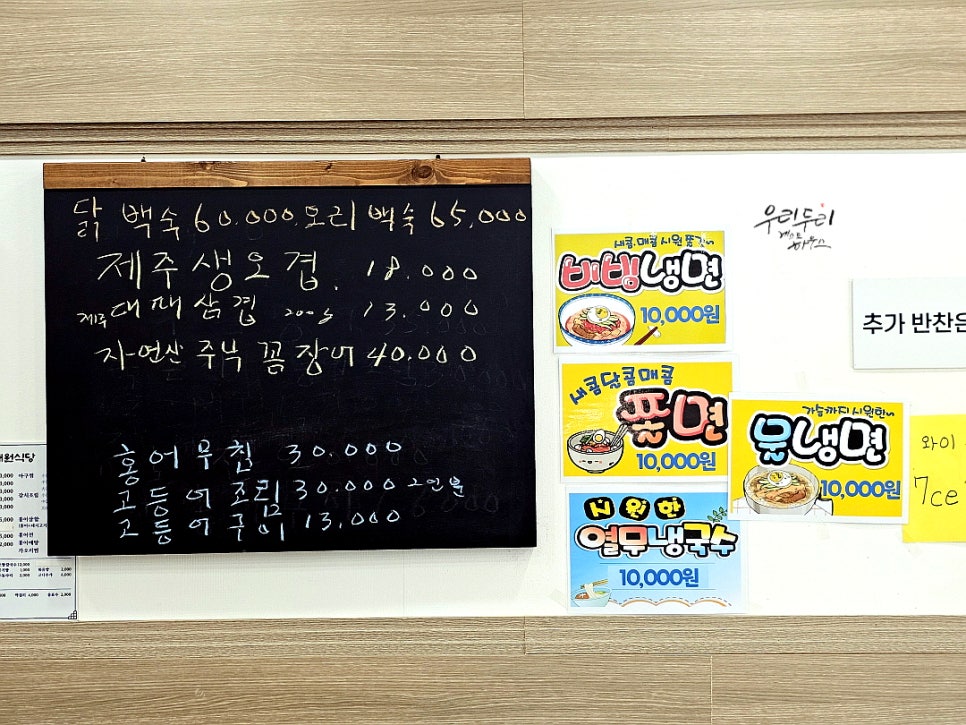 닭 백숙 60.000. 오리 백숙 65,000
제주 생오겹. 18.000
제주 대패삼겹 200g 13.000
자연산 주낙 꼼장어 40.000
홍어무침 30.000
고등어조림 30.000 2인분
고등어구이 13.000
새콤.매콤 시원쫄깃~
비빔냉면
10,000원
새콤달콤매콤
쫄면
10,000원
가슴까지 시원한~
물냉면
10,000원
시원한
열무냉국수
10,000원
우리두리
게스트
하우스
추가 반찬은
와이
7ce
원식당
아구찜